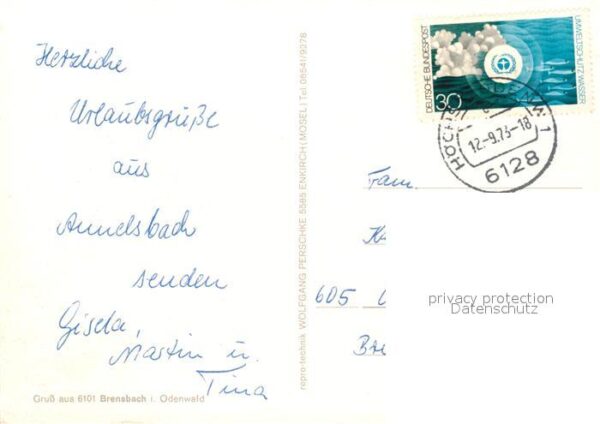 Herzliche
Urlaubsgrüße
aus
Annelsbach
senden
Gisela,
Martin u.
Tina
Gruß aus 6101 Brensbach i. Odenwald
repro-technik WOLFGANG PERSCHKE 5585 ENKIRCH (MOSEL) Tel. 06541/9376
DEUTSCHE BUNDESPOST
30
UMWELTSCHUTZ: WASSER
12.-9.73-18
6128
Fam.
605
privacy protection
Datenschutz